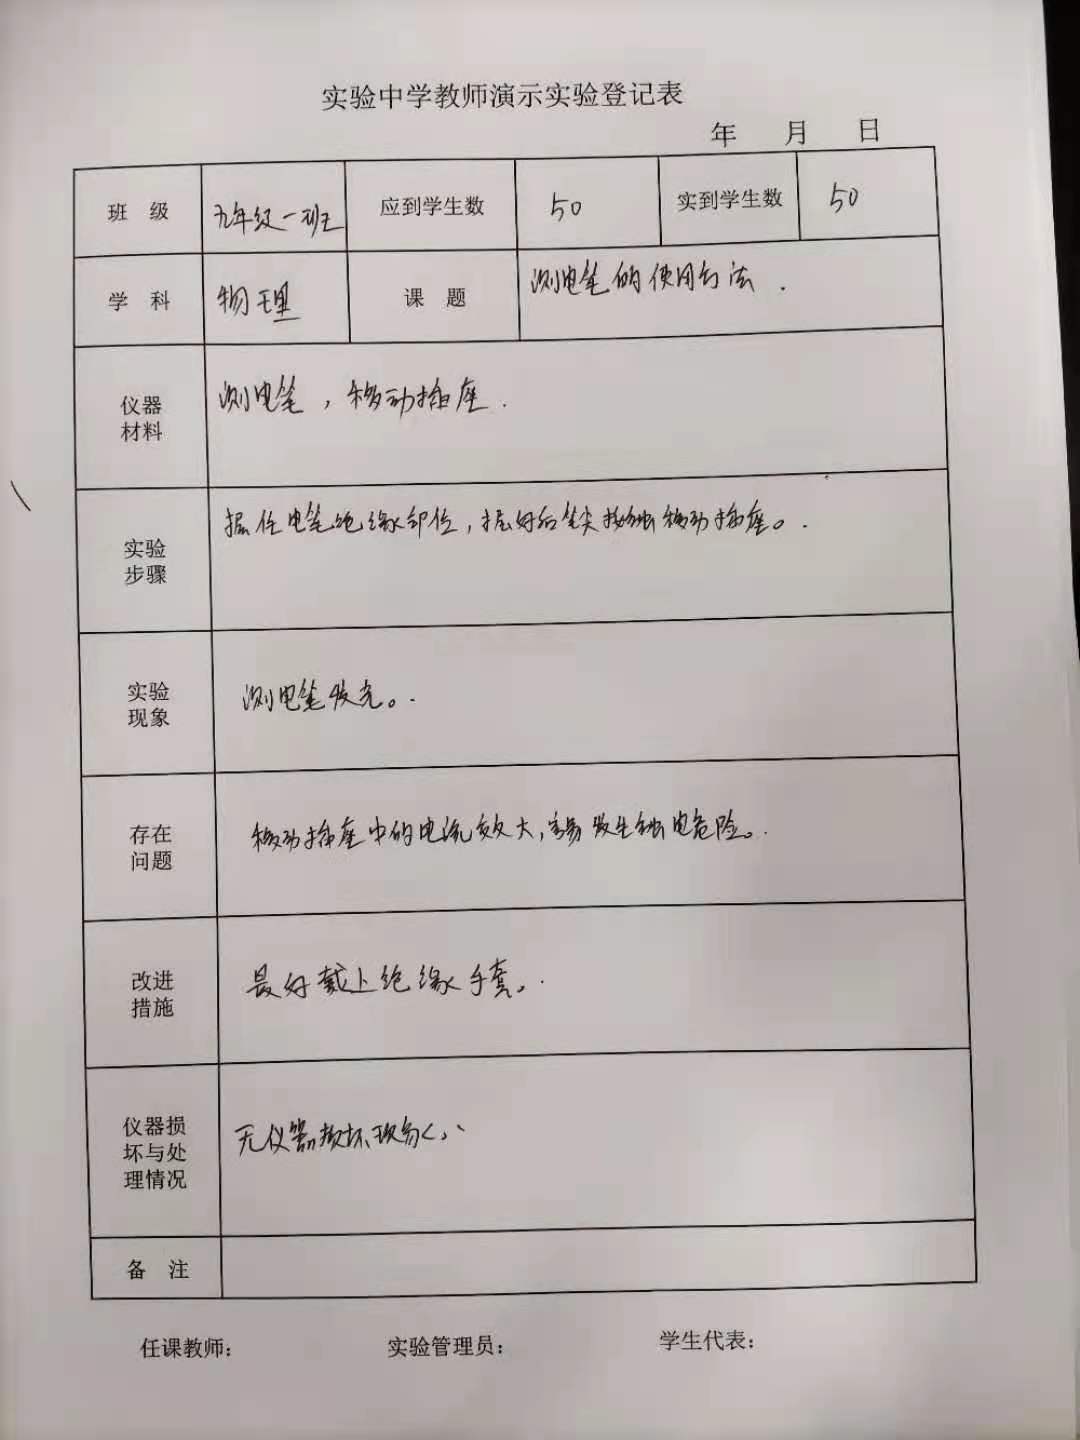 实验中学教师演示实验登记表
年 月 日
班 级 九年级一班 应到学生数 50 实到学生数 50
学 科 物理 课 题 测电笔的使用方法.
仪器
材料
测电笔，移动插座.
实验
步骤
握住电笔绝缘部位，握好后笔尖接触移动插座。.
实验
现象
测电笔发光。.
存在
问题
移动插座中的电流较大，容易发生触电危险。.
改进
措施
最好戴上绝缘手套。.
仪器损
坏与处
理情况
无仪器损坏现象。
备 注
任课教师： 实验管理员： 学生代表：